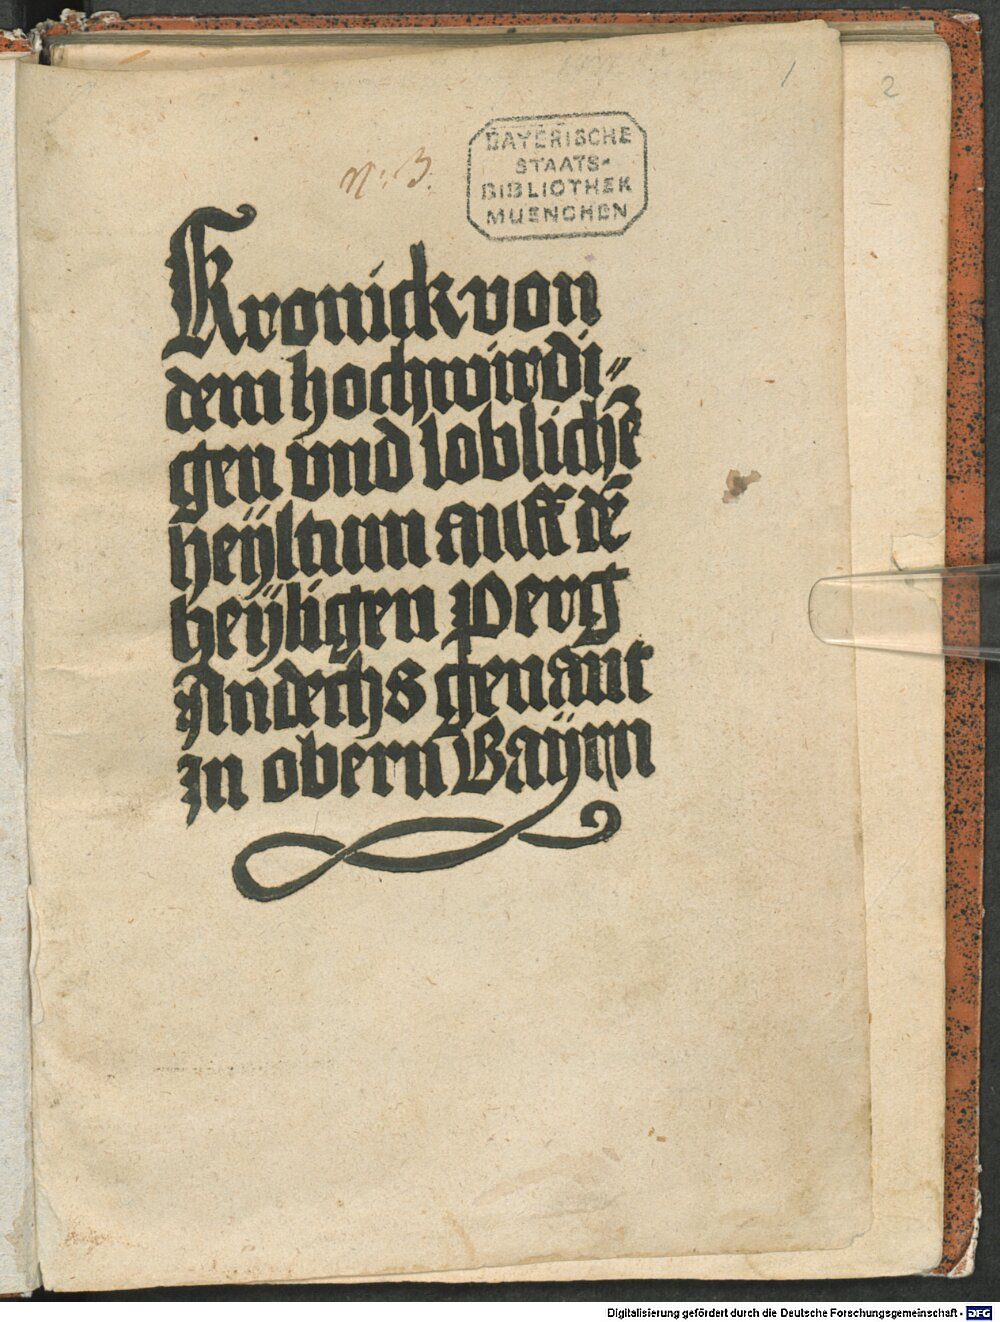 1
2
N: 3.
BAYERISCHE
STAATS-
BIBLIOTHEK
MUENCHEN
Kronick von
dem hochwirdi⸗
gen vnd loblichē
heÿltum auff dē
heÿligen perg
Andechs genant
jn obern Baÿrn
Digitalisierung gefördert durch die Deutsche Forschungsgemeinschaft - DFG